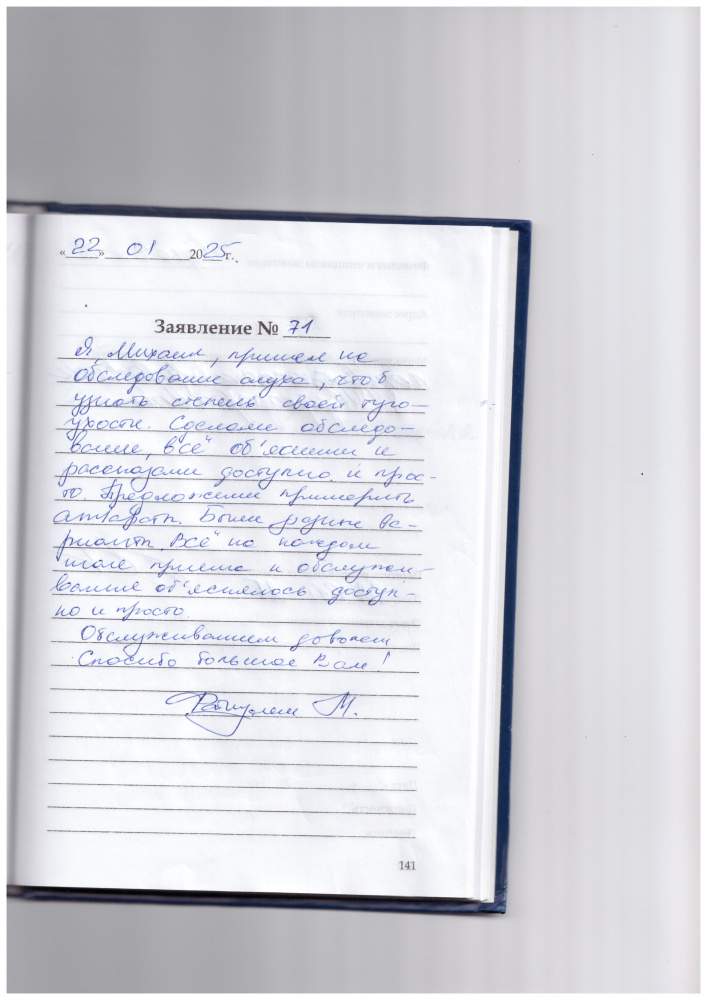 «22» 01 2025г.
Заявление № 71
Я, Михаил, пришел на
обследование слуха, чтоб
узнать степень своей туго-
ухости. Сделали обследо-
вание, всё об'яснили и
рассказали доступно и прос-
то. Предложили примерить
аппараты. Были разные ва-
рианты. Всё на каждом
этапе приема и обслужи-
вания об'яснялось доступ-
но и просто.
Обслуживанием доволен
Спасибо большое Вам!
М.
141